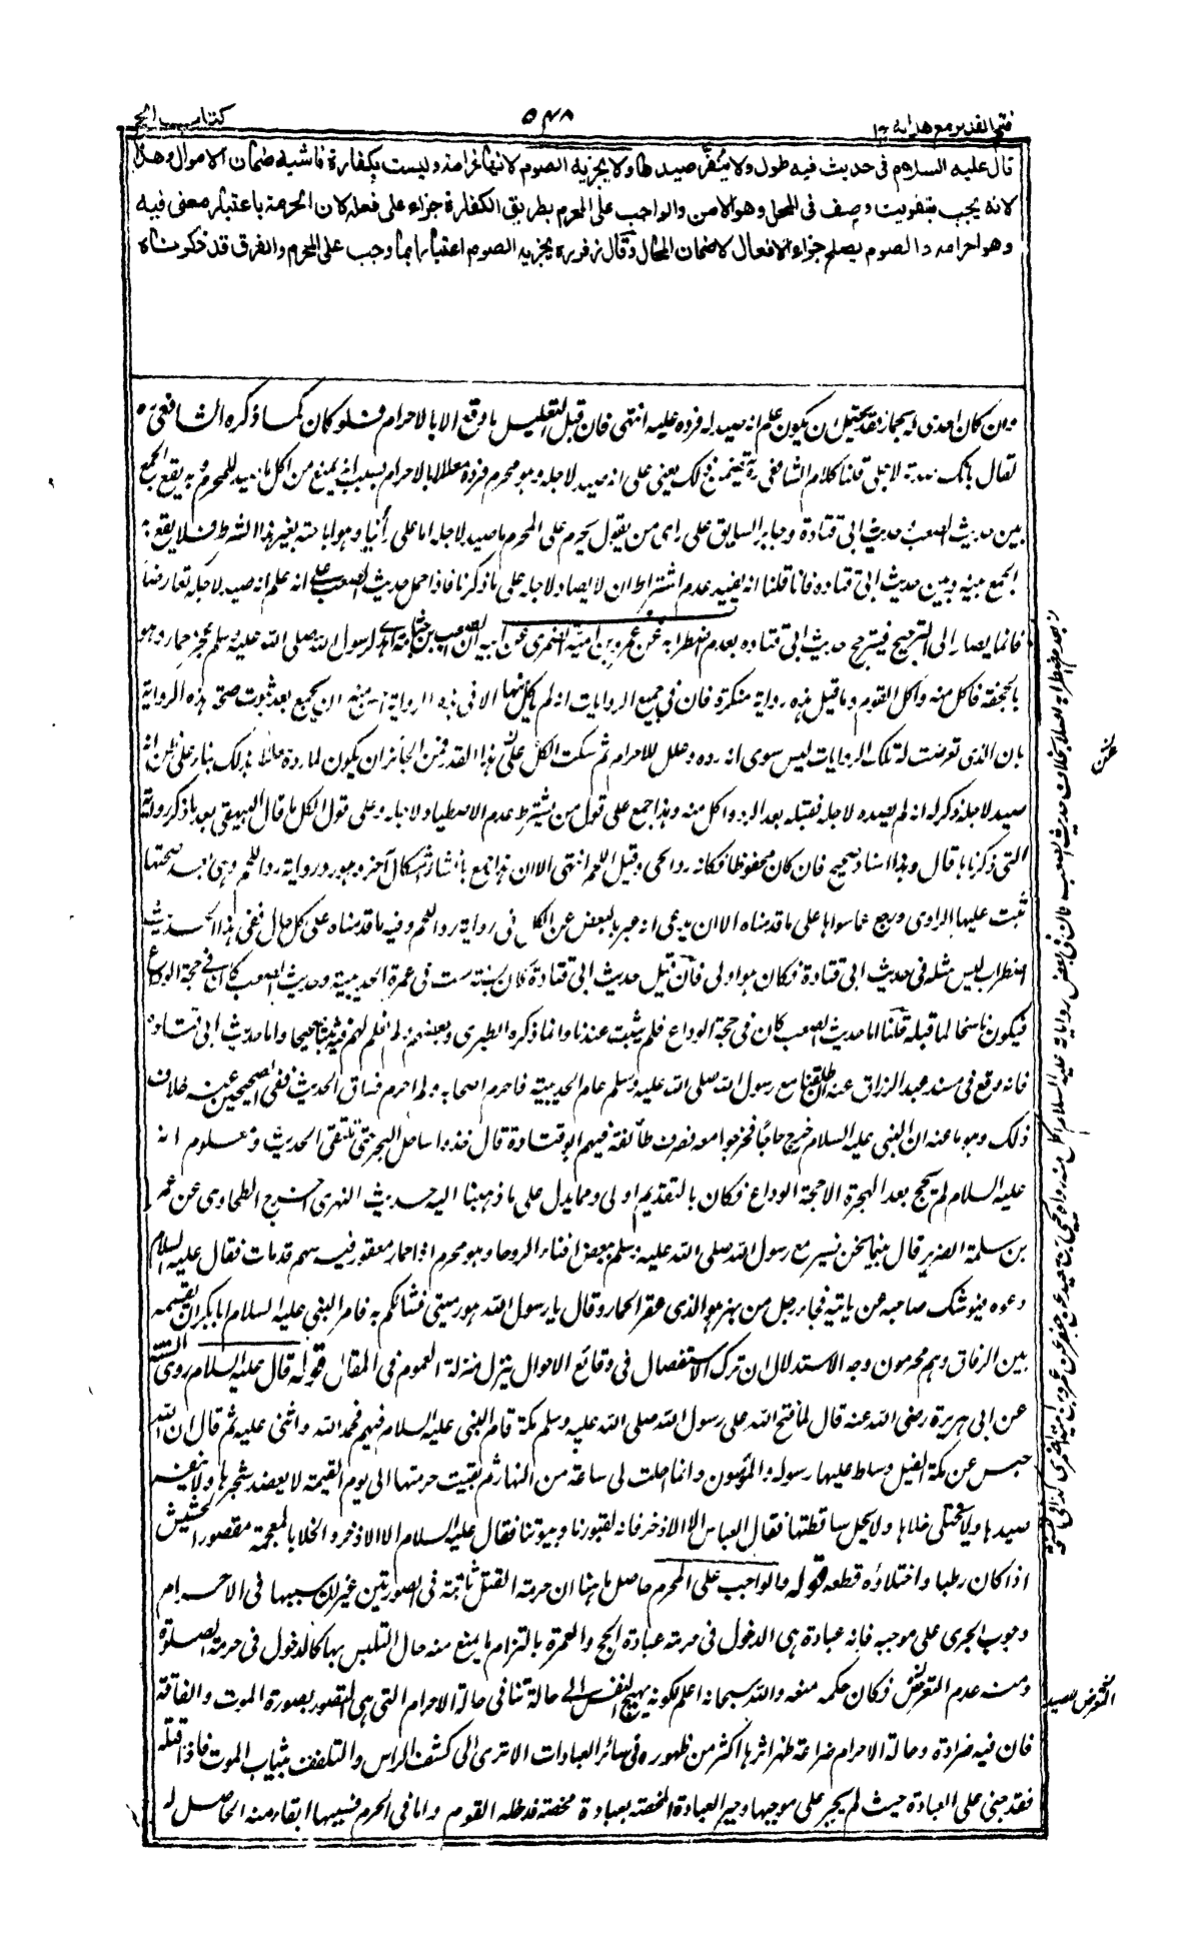 فتح القدير مع هدايه ج١
٥٤٨
كتاب الحج
قال عليه السلام فى حديث فيه طول ولا ينفّر صيدها ولا يجزيه الصوم لانها غرامة وليست بكفارة فاشبه ضمان الاموال وهذا
لانه يجب بتفويت وصف فى المحل وهو الامن والواجب على المحرم بطريق الكفارة جزاء على فعله لان الحرمة باعتبار معنى فيه
وهو احرامه والصوم يصلح جزاء الافعال لا ضمان المحال وقال زفر يجزيه الصوم اعتبارا بما وجب على المحرم والفرق قد ذكرناه
وان كان اهدى له حمارا فقد يحتمل ان يكون علم انه صيد له فرده عليه انتهى فان قيل التعليل ما وقع الا بالاحرام فلو كان كما ذكره الشافعى ره
لقال بانك لاجلى قلنا كلام الشافعى ره تضمن ذلك يعنى على انه صيد لاجله وهو محرم فرده معللا بالاحرام بسبب انه يمنع من اكل ما صيد للمحرم وبه يقع الجمع
بين حديث الصعب وحديث ابى قتادة وجابر السابق على راى من يقول يحرم على المحرم ما صيد لاجله اما على رأينا وهو اباحته بغير هذا الشرط فلا يقع به
الجمع بينه وبين حديث ابى قتادة فانا قلنا انه يفيد عدم اشتراط ان لا يصاد لاجله على ما ذكرنا فاذا حمل حديث الصعب على انه علم انه صيد لاجله تعارضا
فانما يصار الى الترجيح فيترجح حديث ابى قتادة بعدم اضطرابه عن عمرو بن امية الضمرى عن ابيه ان الصعب بن جثامة اهدى لرسول الله صلى الله عليه وسلم عجز حمار وهو
بالجحفة فاكل منه واكل القوم وما قيل هذه رواية منكرة فان فى جميع الروايات انه لم ياكل منها الا فى هذه الرواية ان يجمع بعد ثبوت صحة هذه الرواية
بان الذى تعرضت له تلك الروايات ليس سوى انه رده وعلل للاحرام ثم سكت الكل على هذا القدر فمن الجائز ان يكون لما رده معللا بذلك بناء على ظن انه
صيد لاجله ذكر له انه لم يصده لاجله فقبله بعد الرد واكل منه وهذا جمع على قول من يشترط عدم الاصطياد لاجله وعلى قول الكل ما قال البيهقى بعد ما ذكر رواية
التى ذكرناها قال وهذا اسناد صحيح فان كان محفوظا فكانه رد الحى وقبل اللحم انتهى الا ان هذا جمع بانشاء اشكال آخر وهو رد رواية رد اللحم وهى بعد صحتها
ثبت عليها الراوى ورجع عما سواها على ما قدمناه الا ان يدعى انه عبر بالبعض عن الكل فى رواية رد اللحم وفيه ما قدمناه على كل حال ففى هذا الحديث
اضطراب ليس مثله فى حديث ابى قتادة فكان هو اولى فان قيل حديث ابى قتادة كان سنة ست فى عمرة الحديبية وحديث الصعب كان فى حجة الوداع
فيكون ناسخا لما قبله قلنا اما حديث الصعب كان فى حجة الوداع فلم يثبت عندنا وانما ذكره الطبرى وبعضهم ولم نعلم لهم فيه ثبتا صحيحا واما حديث ابى قتادة
فانه وقع فى مسند عبد الرزاق عنه انطلقنا مع رسول الله صلى الله عليه وسلم عام الحديبية فاحرم اصحابه ولم احرم فساق الحديث ففى الصحيحين عنه خلاف
ذلك وهو ما عنه ان النبى عليه السلام خرج حاجا فخرجوا معه فصرف طائفة فيهم ابو قتادة قال خذوا ساحل البحر حتى نلتقى الحديث ومعلوم انه
عليه السلام لم يحج بعد الهجرة الا حجة الوداع فكان بالتقديم اولى ومما يدل على ما ذهبنا اليه حديث النهرى اخرج الطحاوى عن عمير
بن سلمة الضمرى قال بينما نحن نسير مع رسول الله صلى الله عليه وسلم ببعض افناء الروحاء وهو محرم اذا حمار معقور فيه سهم قد مات فقال عليه السلام
دعوه فيوشك صاحبه ان ياتيه فجاء رجل من بهز هو الذى عقر الحمار وقال يا رسول الله هو رميتى فشانكم به فامر النبى عليه السلام ابا بكر ان يقسمه
بين الرفاق وهم محرمون وجه الاستدلال ان ترك الاستفصال فى وقائع الاحوال ينزل منزلة العموم فى المقال قوله قال عليه السلام روى الستة
عن ابى هريرة رضى الله عنه قال لما فتح الله على رسول الله صلى الله عليه وسلم مكة قام النبى عليه السلام فيهم فحمد الله واثنى عليه ثم قال ان الله
حبس عن مكة الفيل وسلط عليها رسوله والمؤمنون وانما احلت لى ساعة من النهار ثم بقيت حرمتها الى يوم القيمة لا يعضد شجرها ولا ينفر
صيدها ولا يختلى خلاها ولا يحل ساقطتها فقال العباس الا الاذخر فانه لقبورنا وبيوتنا فقال عليه السلام الا الاذخر والخلا بالمعجمة مقصور الحشيش
اذا كان رطبا واختلاؤه قطعه قوله والواجب على المحرم حاصل ما هنا ان حرمة القتل ثابتة فى الصورتين غير ان سببها فى الاحرام
وجوب الجرى على موجبه فانه عبادة هى الدخول فى حرمة عبادة الحج والعمرة بالتزام ما يمنع منه حال التلبس بها كالدخول فى حرمة الصلوة
ومنه عدم التعرض فكان حكمه منعه والله سبحانه اعلم لكونه يهيج النفس الى حالة تنافى حالة الاحرام التى هى التصور بصورة الموت والفاقة
فان فيه ضراوة وحالة الاحرام ضراعة ظهر اثرها اكثر من ظهوره فى سائر العبادات الا ترى الى كشف الراس والتلفف بثياب الموت فاذا قتله
فقد جنى على العبادة حيث لم يجر على موجبها وجبر العبادة المحضة بعبادة محضة فدخله الصوم واما فى الحرم فسببها ابقاء منه الحاصل له
التعرض للصيد